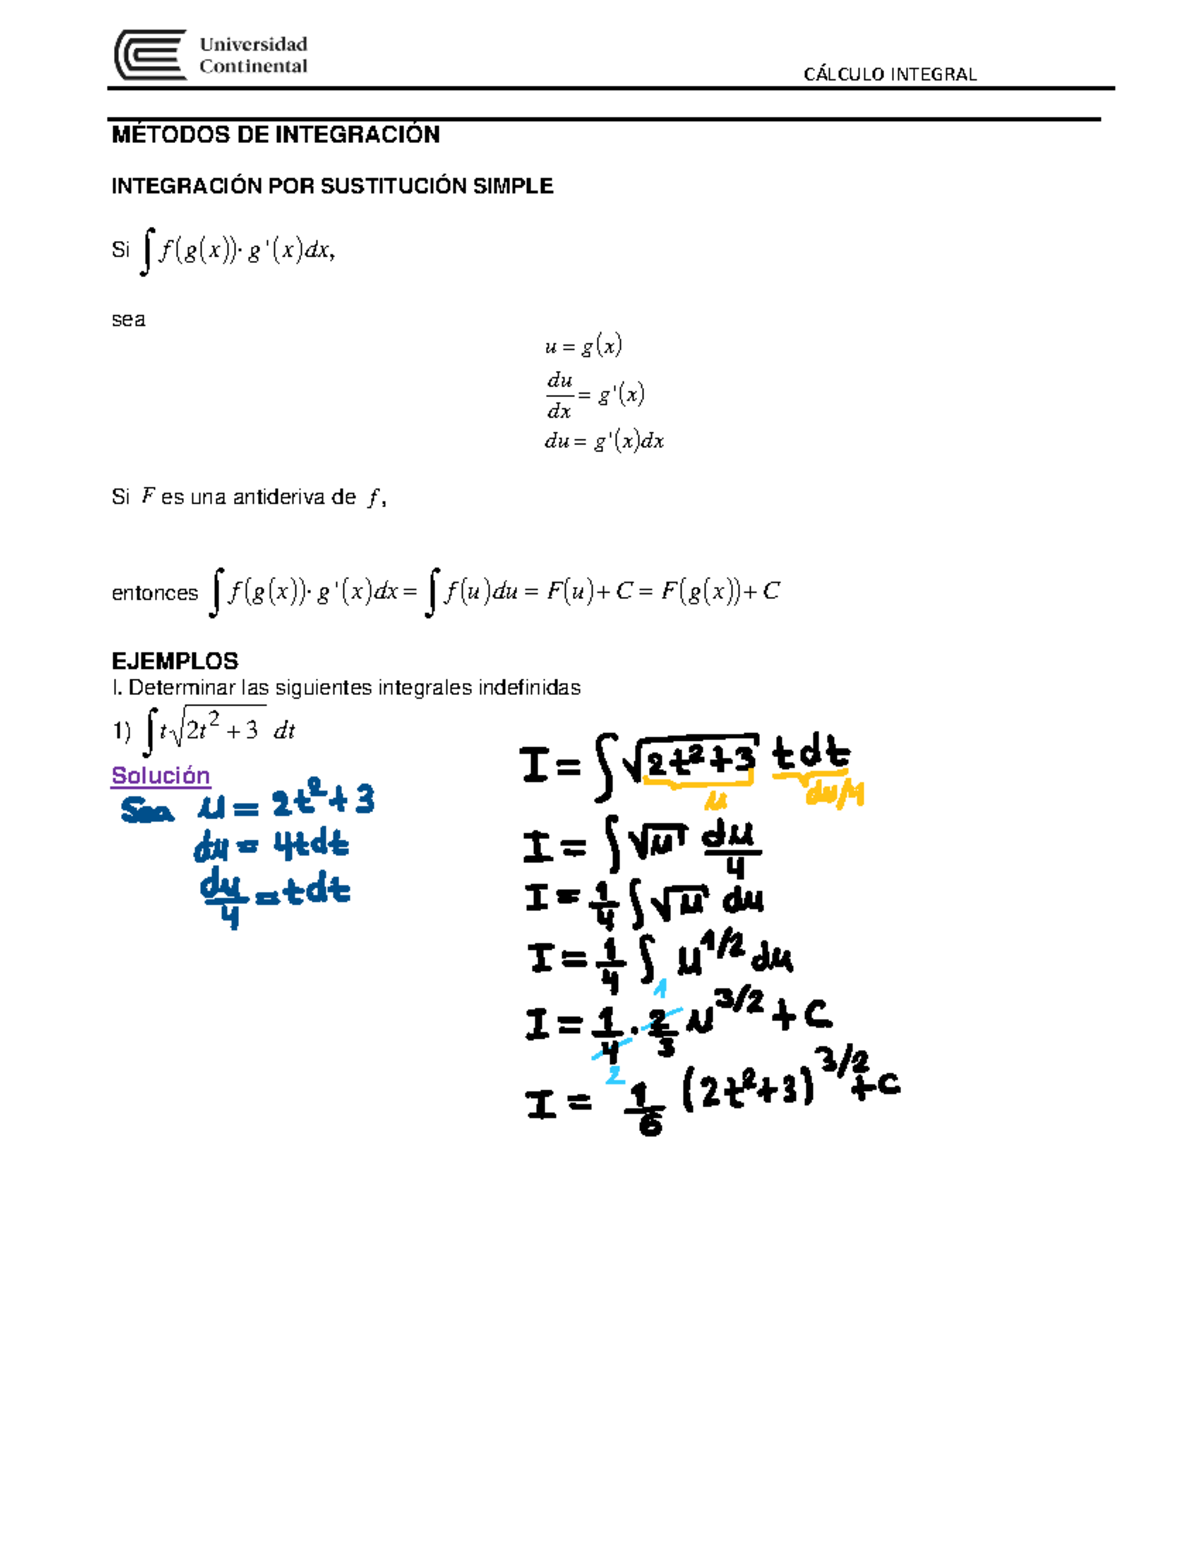 Universidad
Continental
CÁLCULO INTEGRAL
MÉTODOS DE INTEGRACIÓN
INTEGRACIÓN POR SUSTITUCIÓN SIMPLE
Si ∫ f(g(x))· g '(x)dx,
sea
u = g(x)
du/dx = g'(x)
du = g'(x)dx
Si F es una antideriva de f,
entonces ∫ f(g(x))· g '(x)dx = ∫ f(u)du = F(u)+ C = F(g(x))+ C
EJEMPLOS
I. Determinar las siguientes integrales indefinidas
1) ∫ t√(2t² + 3) dt
Solución
Sea u = 2t²+3
du = 4tdt
du/4 = tdt
I = ∫ √(2t²+3) tdt
u du/4
I = ∫ √u du/4
I = 1/4 ∫ √u du
I = 1/4 ∫ u^1/2 du
1
I = 1/4 · 2/3 u^3/2 + C
2
I = 1/6 (2t²+3)^3/2 + C